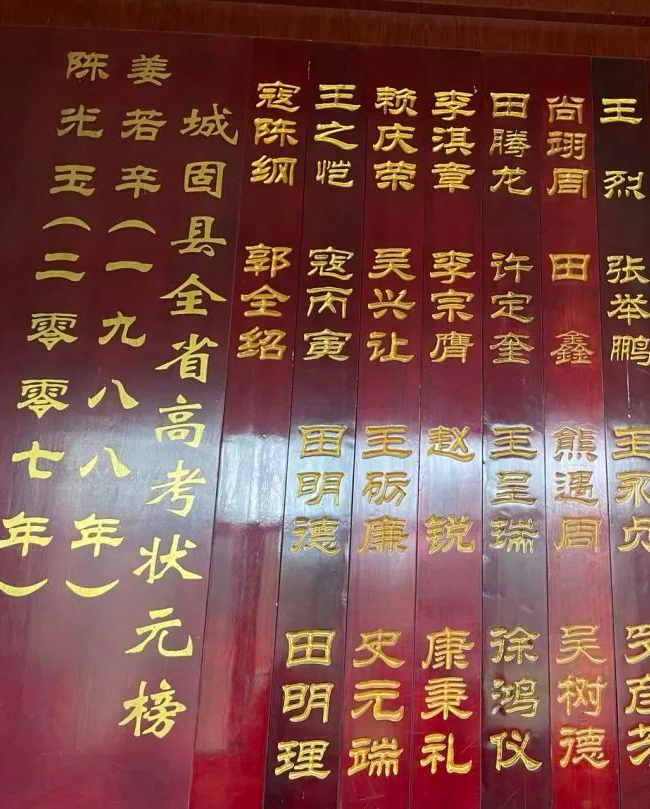 王烈 张举鹏 王永贞
尚翊周 田鑫 熊遇周 吴树德
田腾龙 许定奎 王呈瑞 徐鸿仪
李淇章 李宗膺 赵锐 康秉礼
赖庆荣 吴兴让 王砺廉 史元端
王之恺 寇丙寅 田明德 田明理
寇陈纲 郭全绍
城固县全省高考状元榜
姜若辛（一九八八年）
陈光玉（二零零七年）